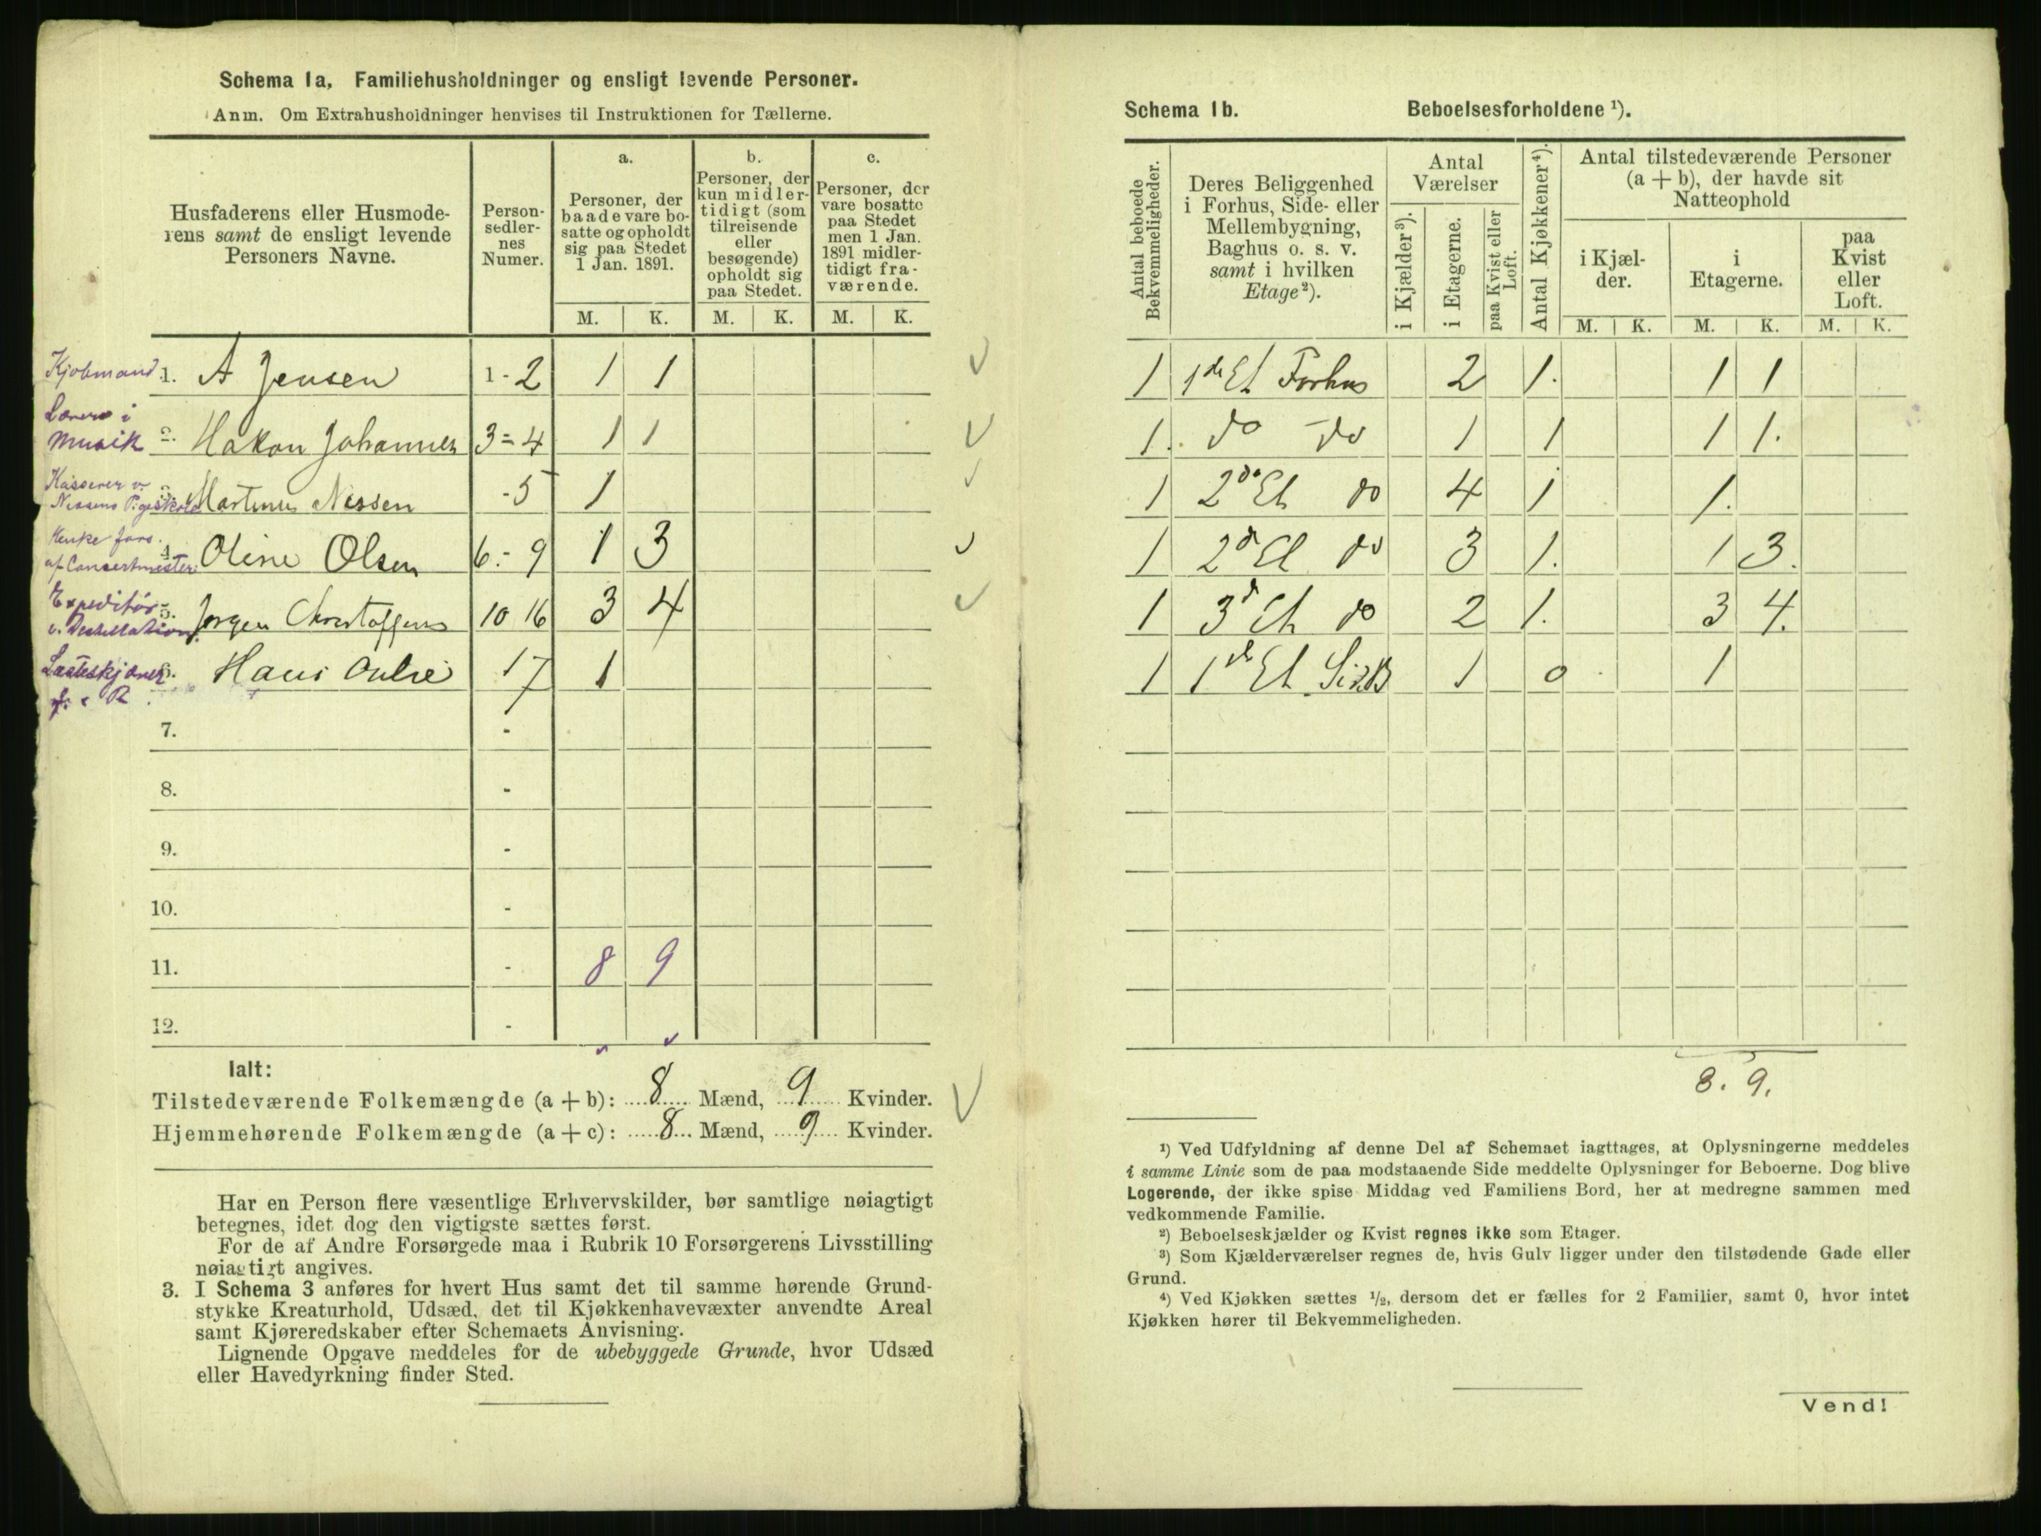 Schema 1a, Familiehusholdninger og ensligt levende Personer.
Anm. Om Extrahusholdninger henvises til Instruktionen for Tællerne.
Husfaderens eller Husmode-
rens samt de ensligt levende
Personers Navne.
Person-
sedler-
nes
Numer.
a.
Personer, der
baade vare bo-
satte og opholdt
sig paa Stedet
1 Jan. 1891.
b.
Personer, der
kun midler-
tidigt (som
tilreisende
eller
besøgende)
opholdt sig
paa Stedet.
c.
Personer, der
vare bosatte
paa Stedet
men 1 Jan.
1891 midler-
tidigt fra-
værende.
M. K. M. K. M. K.
Kjøbmand 1. A Jensen 1-2 1 1
Lærer i
Musik 2. Hakon Johannes 3=4 1 1
Kasserer v.
Nissens Pigeskole 3. Martinus Nissen -5 1
Henke fors.
af Concertmester 4. Oline Olsen 6-9 1 3
Expeditør
v. Destillation 5. Jørgen Christoffersen 10 16 3 4
6. Hans 17 1
7. -
8. -
9. -
10. -
11. - 8 9
12. -
Ialt:
Tilstedeværende Folkemængde (a + b): 8 Mænd, 9 Kvinder.
Hjemmehørende Folkemængde (a + c): 8 Mænd, 9 Kvinder.
Har en Person flere væsentlige Erhvervskilder, bør samtlige nøiagtigt
betegnes, idet dog den vigtigste sættes først.
For de af Andre Forsørgede maa i Rubrik 10 Forsørgerens Livsstilling
nøiagtigt angives.
3. I Schema 3 anføres for hvert Hus samt det til samme hørende Grund-
stykke Kreaturhold, Udsæd, det til Kjøkkenhavevæxter anvendte Areal
samt Kjøreredskaber efter Schemaets Anvisning.
Lignende Opgave meddeles for de ubebyggede Grunde, hvor Udsæd
eller Havedyrkning finder Sted.
Schema 1b. Beboelsesforholdene ¹).
Antal beboede
Bekvemmeligheder.
Deres Beliggenhed
i Forhus, Side- eller
Mellembygning,
Baghus o. s. v.
samt i hvilken
Etage²).
Antal
Værelser
i Kjælder³).
i Etagerne.
paa Kvist eller
Loft.
Antal Kjøkkener⁴).
Antal tilstedeværende Personer
(a + b), der havde sit
Natteophold
i Kjæl-
der.
i
Etagerne.
paa
Kvist
eller
Loft.
M. K. M. K. M. K.
1 1de Et Forhus 2 1. 1 1
1. do do 1 1 1 1.
1 2de Et do 4 1 1.
1 2d Et do 3 1. 1 3.
1 3d Et do 2 1. 3 4.
1 1de Et 1 0 1
8. 9.
¹) Ved Udfyldning af denne Del af Schemaet iagttages, at Oplysningerne meddeles
i samme Linie som de paa modstaaende Side meddelte Oplysninger for Beboerne. Dog blive
Logerende, der ikke spise Middag ved Familiens Bord, her at medregne sammen med
vedkommende Familie.
²) Beboelseskjælder og Kvist regnes ikke som Etager.
³) Som Kjælderværelser regnes de, hvis Gulv ligger under den tilstødende Gade eller
Grund.
⁴) Ved Kjøkken sættes ½, dersom det er fælles for 2 Familier, samt 0, hvor intet
Kjøkken hører til Bekvemmeligheden.
Vend!